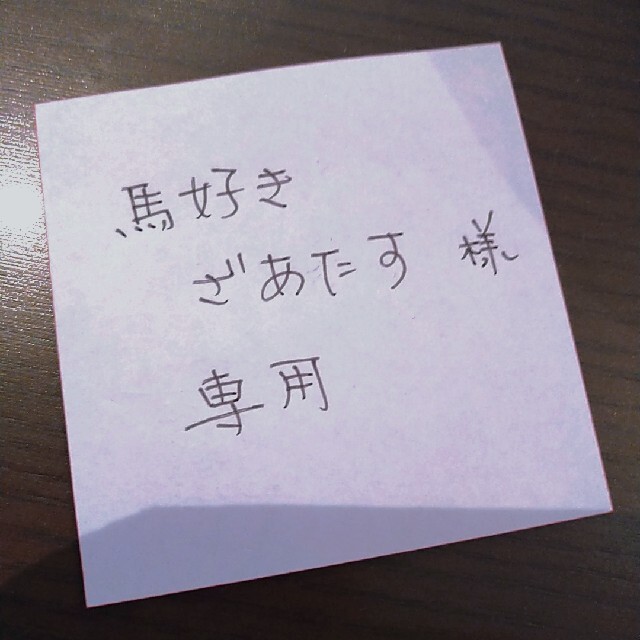 馬好き
ざあたす 様
専用